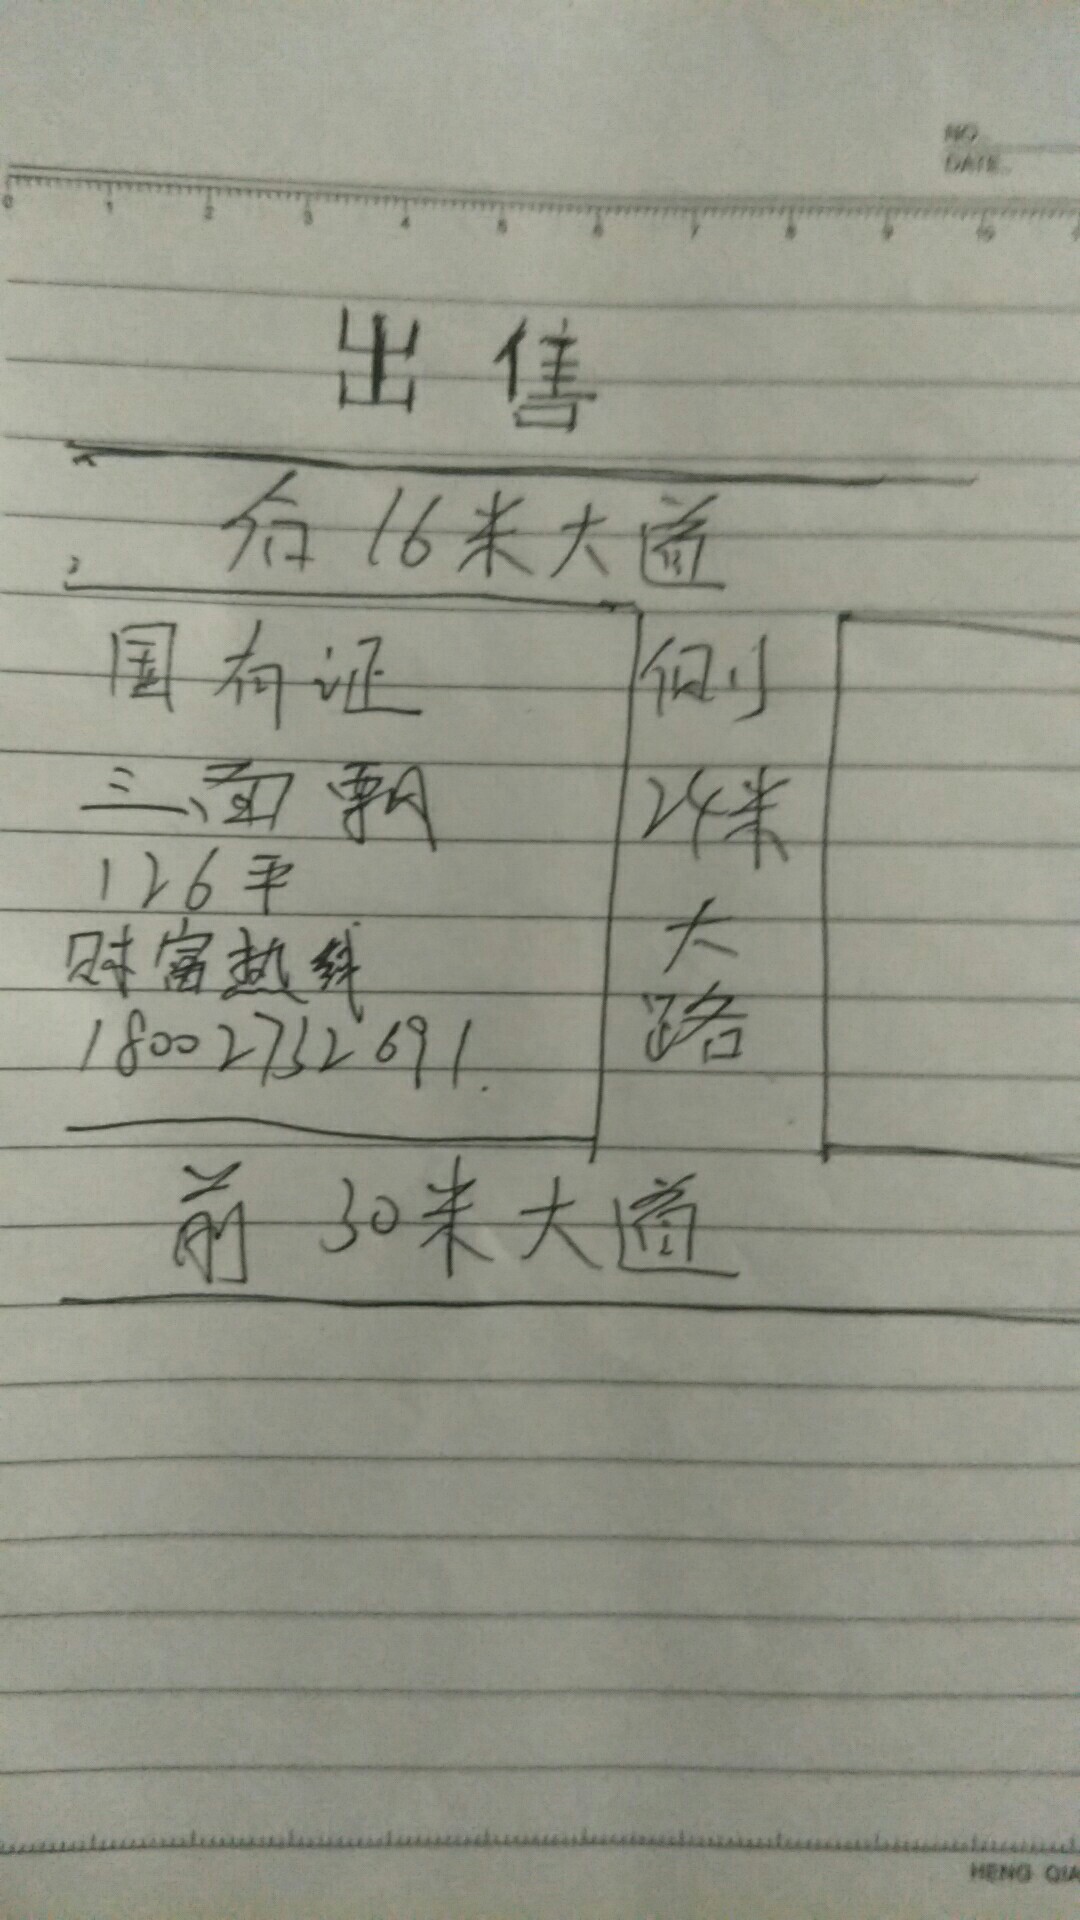 NO.
DATE.
0 1 2 3 4 5 6 7 8 9 10
出售
后 16米大道
国有证
三面飘
126平
财富热线
18002732691.
侧
24米
大
路
前 30米大道
HENG QIA